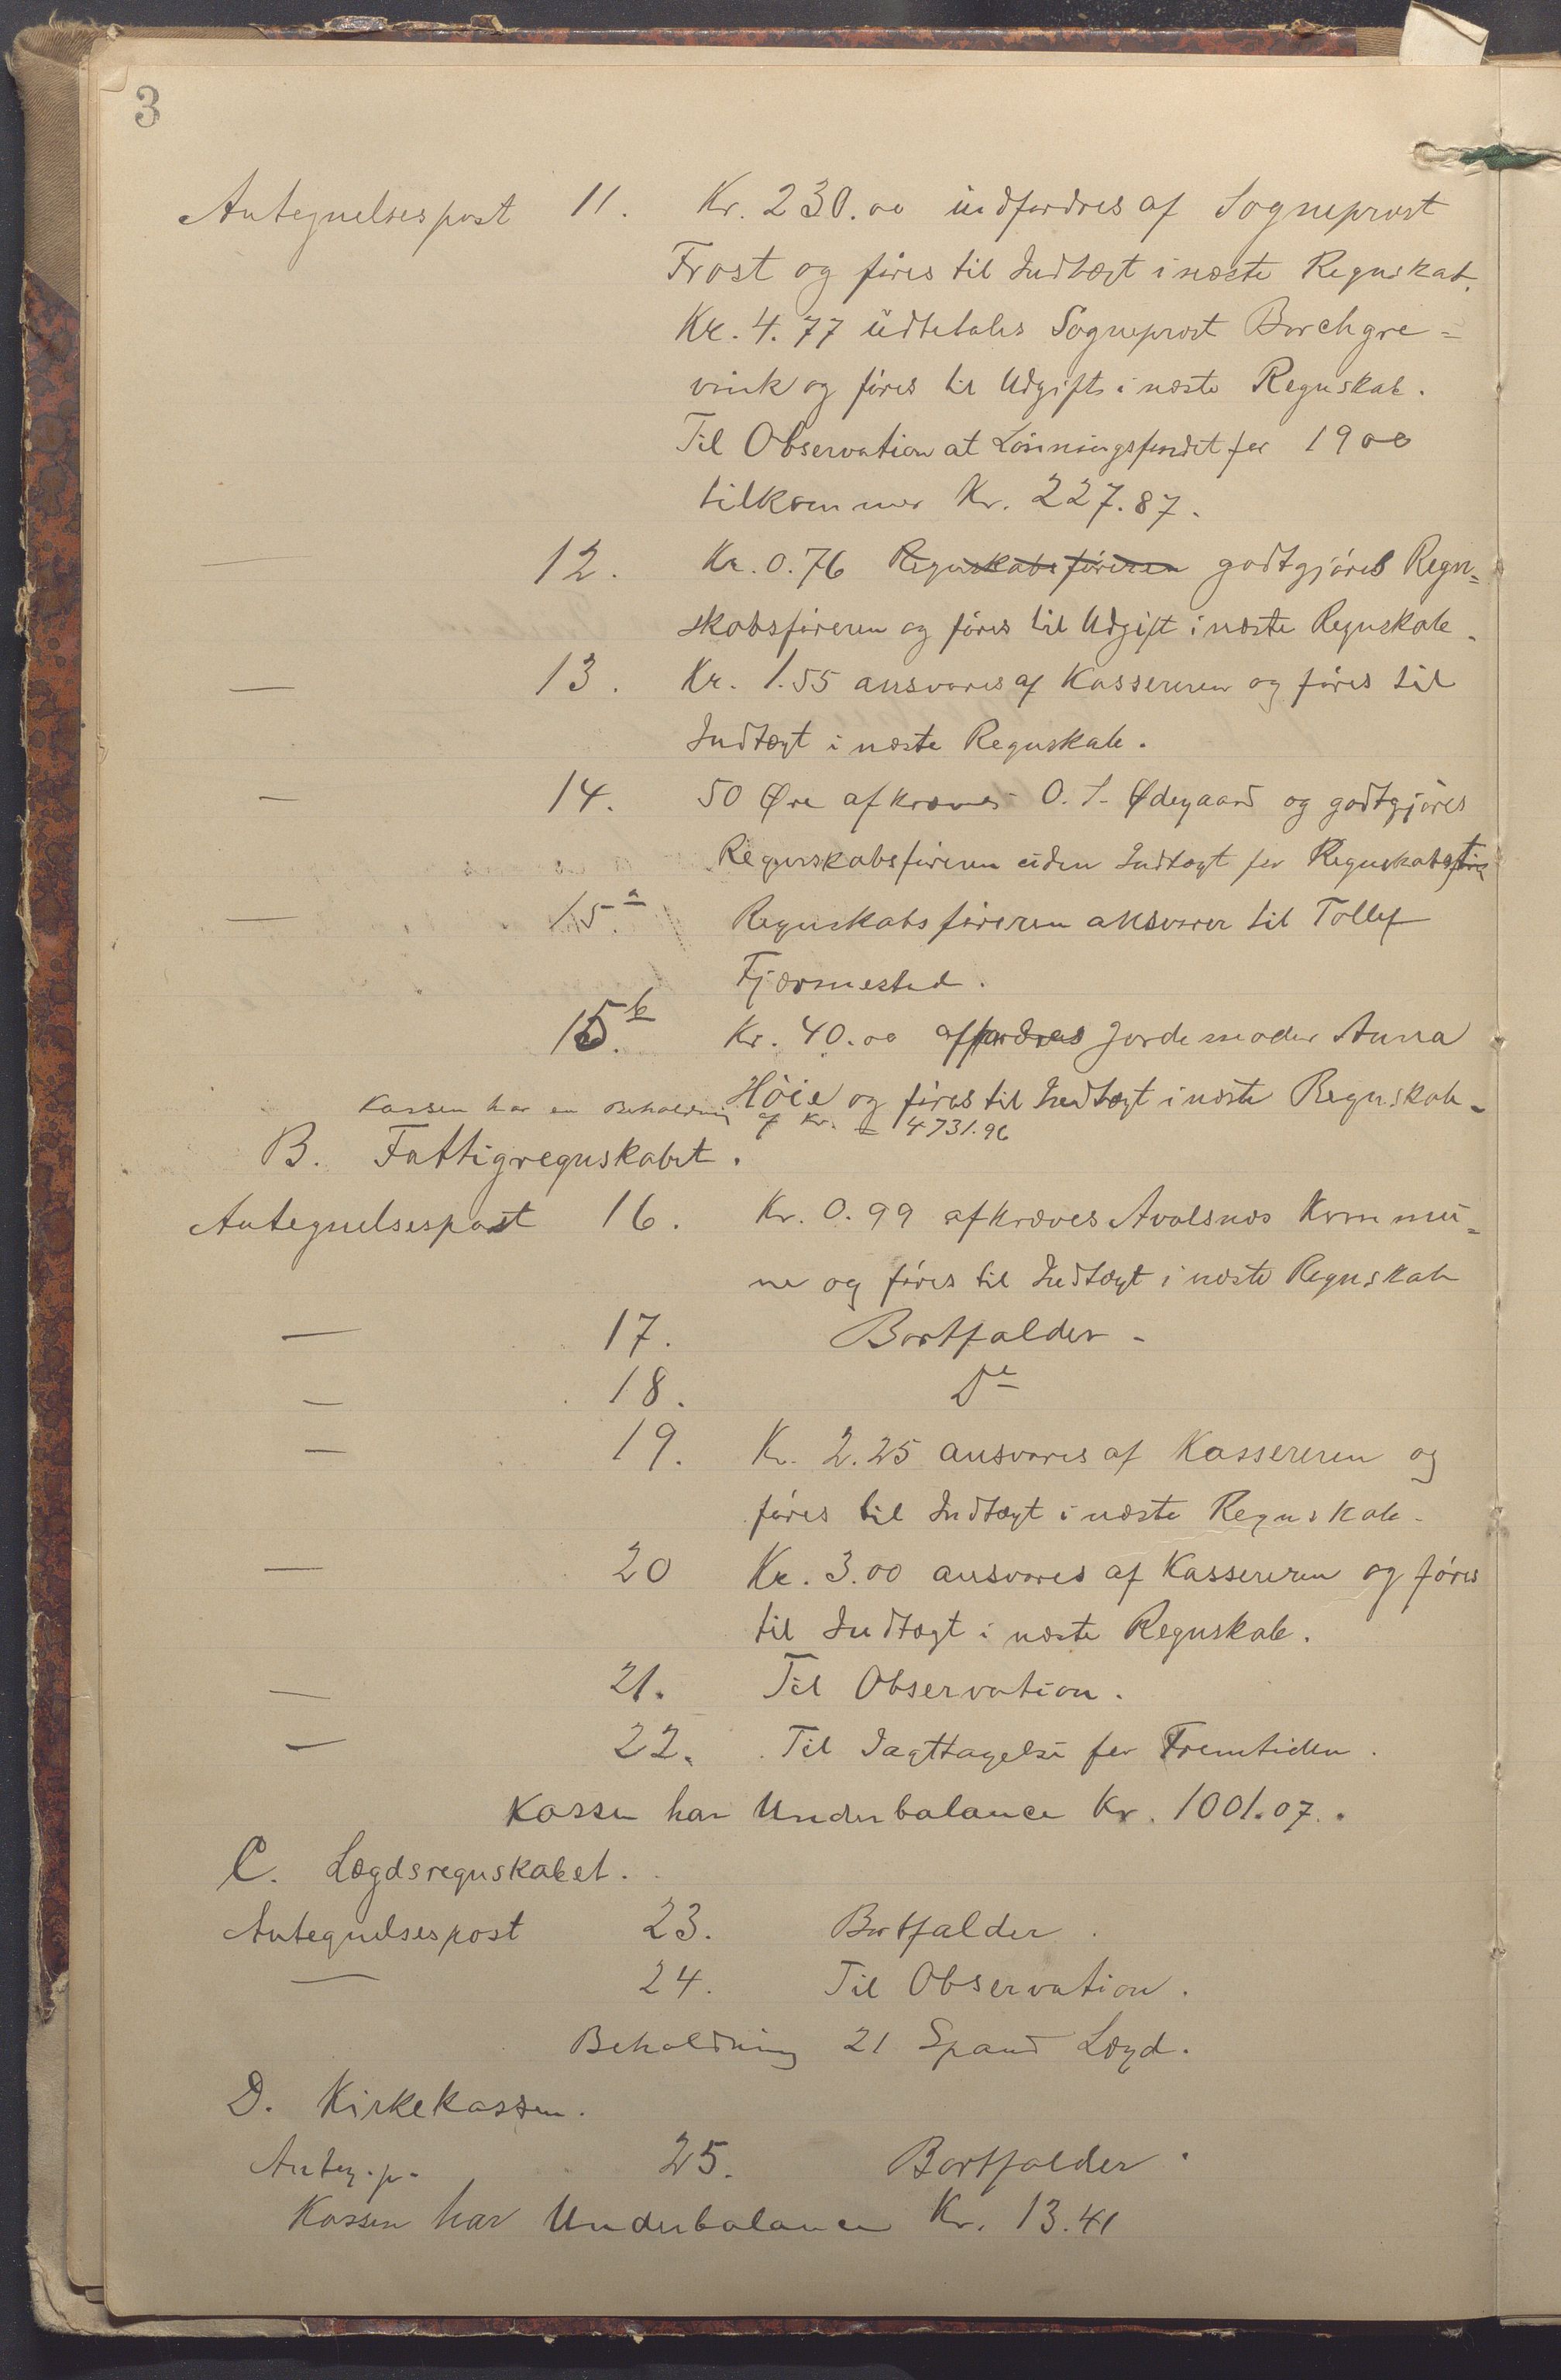 3
Antegnelsespost 11. Kr. 230.00 indfordres af Sogneprest
Frost og føres til Indtægt i næste Regnskab.
Kr. 4.77 udbetales Sogneprest Borchgre=
vink og føres til Udgift i næste Regnskab.
Til Observation at Lønningsfondet for 1900
tilkommer Kr. 227.87.
— 12. Kr. 0.76 Regnskabsføreren godtgjøres Regn=
skabsføreren og føres til Udgift i næste Regnskab.
— 13. Kr. 1.55 ansvares af Kassereren og føres til
Indtægt i næste Regnskab.
— 14. 50 Øre afkræves O. S. Ødegaard og godtgjøres
Regnskabsføreren uden Indtægt for Regnskabet
— 15a Regnskabsføreren ansvarer til Tollef
Fjærmested.
15b. Kr. 40.00 affordres Jordemoder Anna
Høie og føres til Indtægt i næste Regnskab.
Kassen har en Beholdning af Kr. = 4731.96
B. Fattigregnskabet.
Antegnelsespost 16. Kr. 0.99 afkræves Avalsnes Kommu=
ne og føres til Indtægt i næste Regnskab
— 17. Bortfalder.
— 18. Do
— 19. Kr. 2.25 ansvares af Kassereren og
føres til Indtægt i næste Regnskab.
— 20 Kr. 3.00 ansvares af Kassereren og føres
til Indtægt i næste Regnskab.
— 21. Til Observation.
— 22. Til Iagttagelse for Fremtiden.
Kassen har Underbalance Kr. 1001.07.
C. Lægdsregnskabet.
Antegnelsespost 23. Bortfalder.
— 24. Til Observation.
Beholdning 21 Spand Lægd.
D. Kirkekassen.
Anteg.p. 25. Bortfalder.
Kassen har Underbalance Kr. 13.41